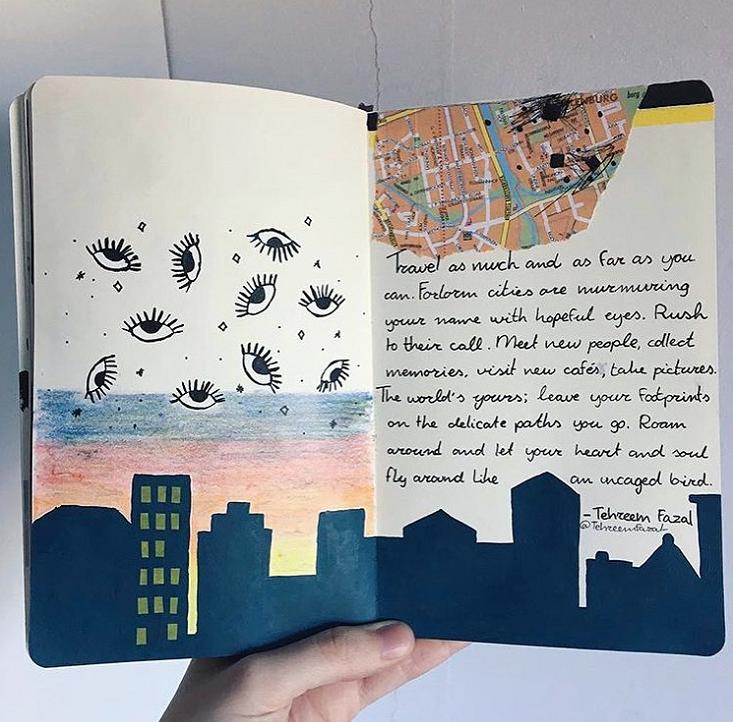 ENBURG
Travel as much and as far as you
can. Forlorm cities are murmuring
your name with hopeful eyes. Rush
to their call. Meet new people, collect
memories, visit new cafés, take pictures.
The world's yours; leave your footprints
on the delicate paths you go. Roam
around and let your heart and soul
fly around like an uncaged bird.
-Tehreem Fazal
@Tehreemfazal